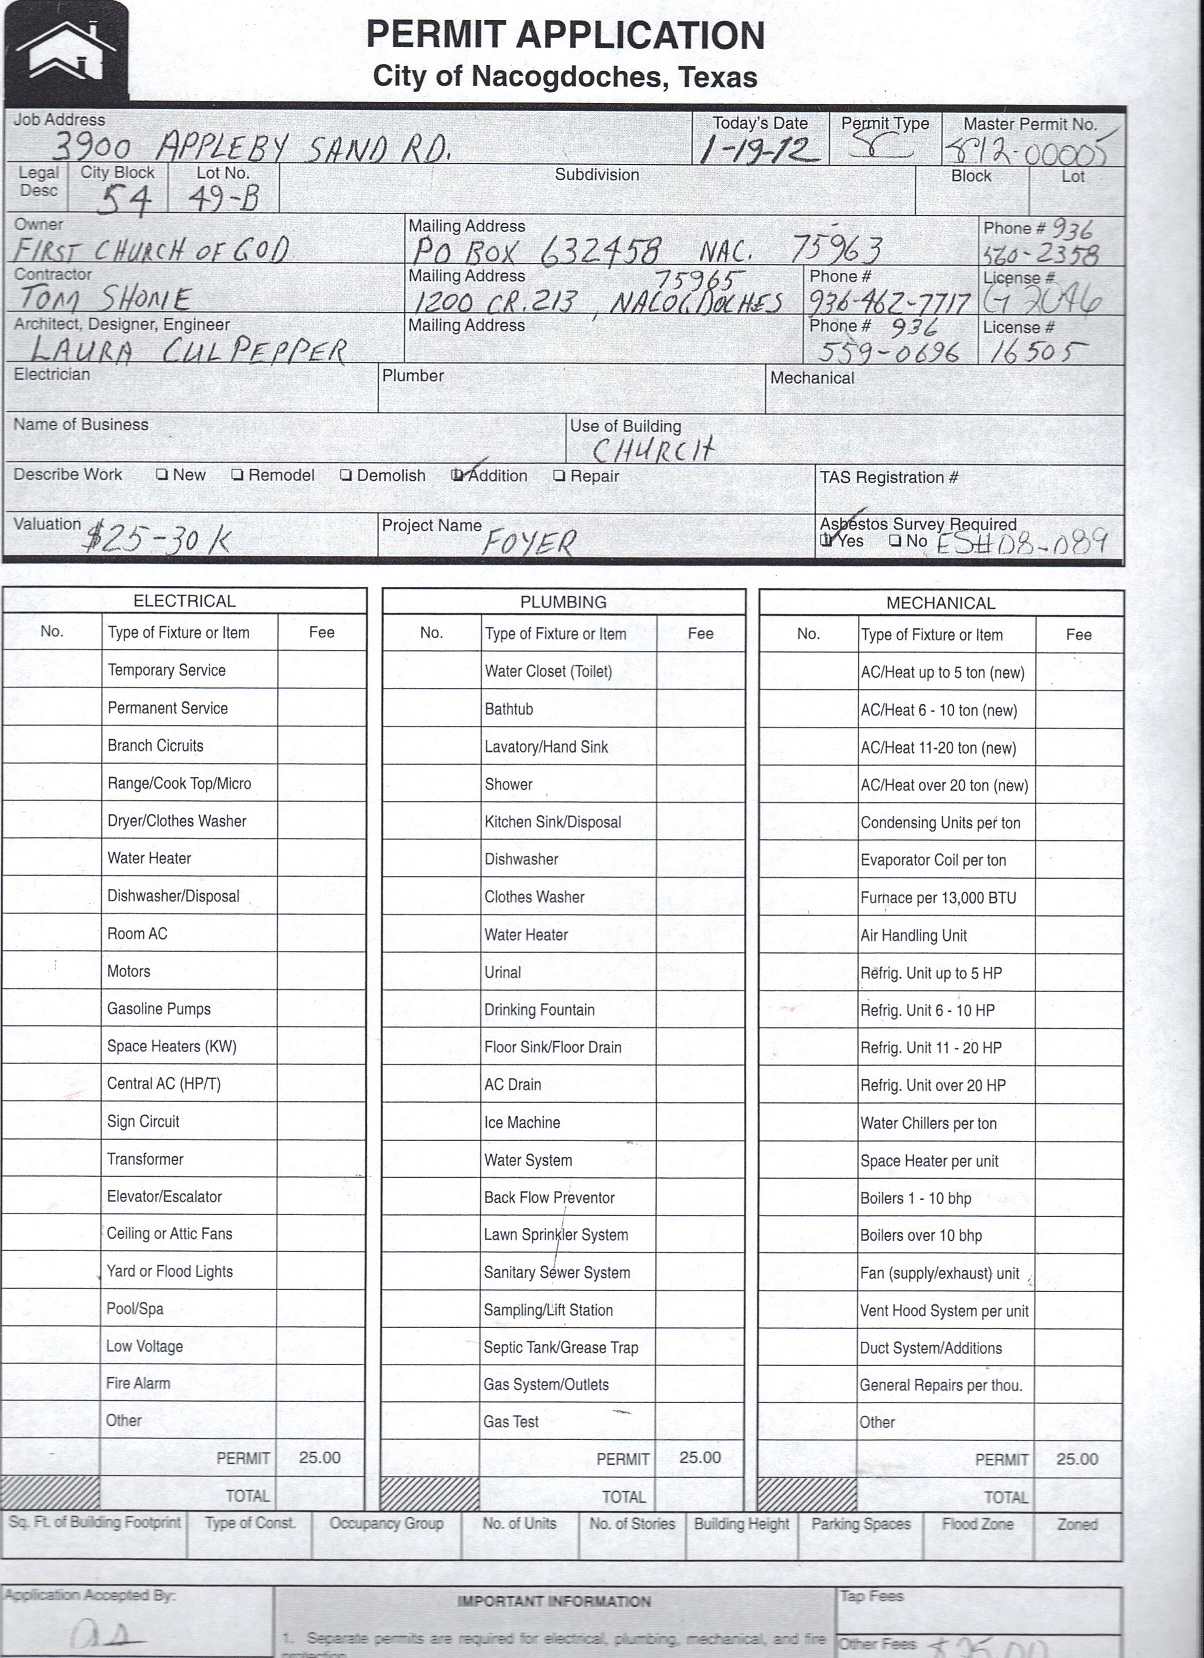 PERMIT APPLICATION
City of Nacogdoches, Texas
Job Address Today's Date Permit Type Master Permit No.
3900 APPLEBY SAND RD. 1-19-12 812-00005
Legal Desc City Block Lot No. Subdivision Block Lot
54 49-B
Owner Mailing Address Phone # 936
FIRST CHURCH OF GOD PO BOX 632458 NAC. 75963 560-2358
Contractor Mailing Address 75965 Phone # License #
TOM SHONE 1200 CR. 213, NACOGDOCHES 936-462-7717 G 2046
Architect, Designer, Engineer Mailing Address Phone # 936 License #
LAURA CULPEPPER 559-0696 16505
Electrician Plumber Mechanical
Name of Business Use of Building
CHURCH
Describe Work New Remodel Demolish Addition Repair TAS Registration #
Valuation $25-30 K Project Name FOYER Asbestos Survey Required
Yes No ESH08-089
ELECTRICAL PLUMBING MECHANICAL
No. Type of Fixture or Item Fee No. Type of Fixture or Item Fee No. Type of Fixture or Item Fee
Temporary Service Water Closet (Toilet) AC/Heat up to 5 ton (new)
Permanent Service Bathtub AC/Heat 6 - 10 ton (new)
Branch Cicruits Lavatory/Hand Sink AC/Heat 11-20 ton (new)
Range/Cook Top/Micro Shower AC/Heat over 20 ton (new)
Dryer/Clothes Washer Kitchen Sink/Disposal Condensing Units per ton
Water Heater Dishwasher Evaporator Coil per ton
Dishwasher/Disposal Clothes Washer Furnace per 13,000 BTU
Room AC Water Heater Air Handling Unit
Motors Urinal Refrig. Unit up to 5 HP
Gasoline Pumps Drinking Fountain Refrig. Unit 6 - 10 HP
Space Heaters (KW) Floor Sink/Floor Drain Refrig. Unit 11 - 20 HP
Central AC (HP/T) AC Drain Refrig. Unit over 20 HP
Sign Circuit Ice Machine Water Chillers per ton
Transformer Water System Space Heater per unit
Elevator/Escalator Back Flow Preventor Boilers 1 - 10 bhp
Ceiling or Attic Fans Lawn Sprinkler System Boilers over 10 bhp
Yard or Flood Lights Sanitary Sewer System Fan (supply/exhaust) unit
Pool/Spa Sampling/Lift Station Vent Hood System per unit
Low Voltage Septic Tank/Grease Trap Duct System/Additions
Fire Alarm Gas System/Outlets General Repairs per thou.
Other Gas Test Other
PERMIT 25.00 PERMIT 25.00 PERMIT 25.00
TOTAL TOTAL TOTAL
Sq. Ft. of Building Footprint Type of Const. Occupancy Group No. of Units No. of Stories Building Height Parking Spaces Flood Zone Zoned
Application Accepted By: IMPORTANT INFORMATION Tap Fees
1. Separate permits are required for electrical, plumbing, mechanical, and fire Other Fees